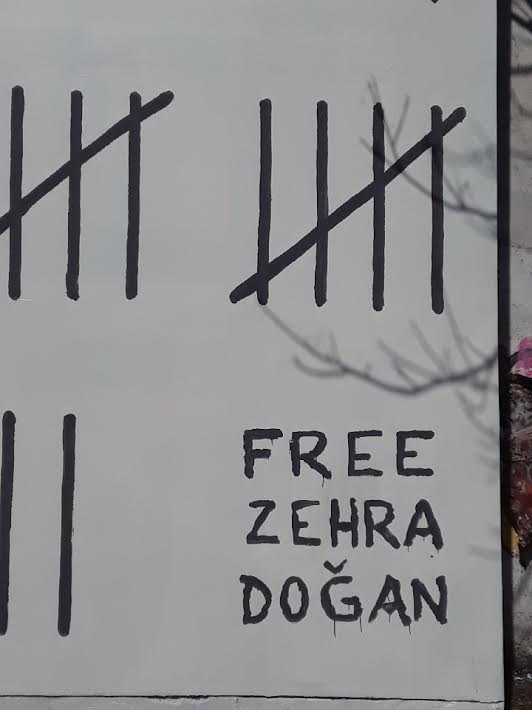 FREE
ZEHRA
DOĞAN